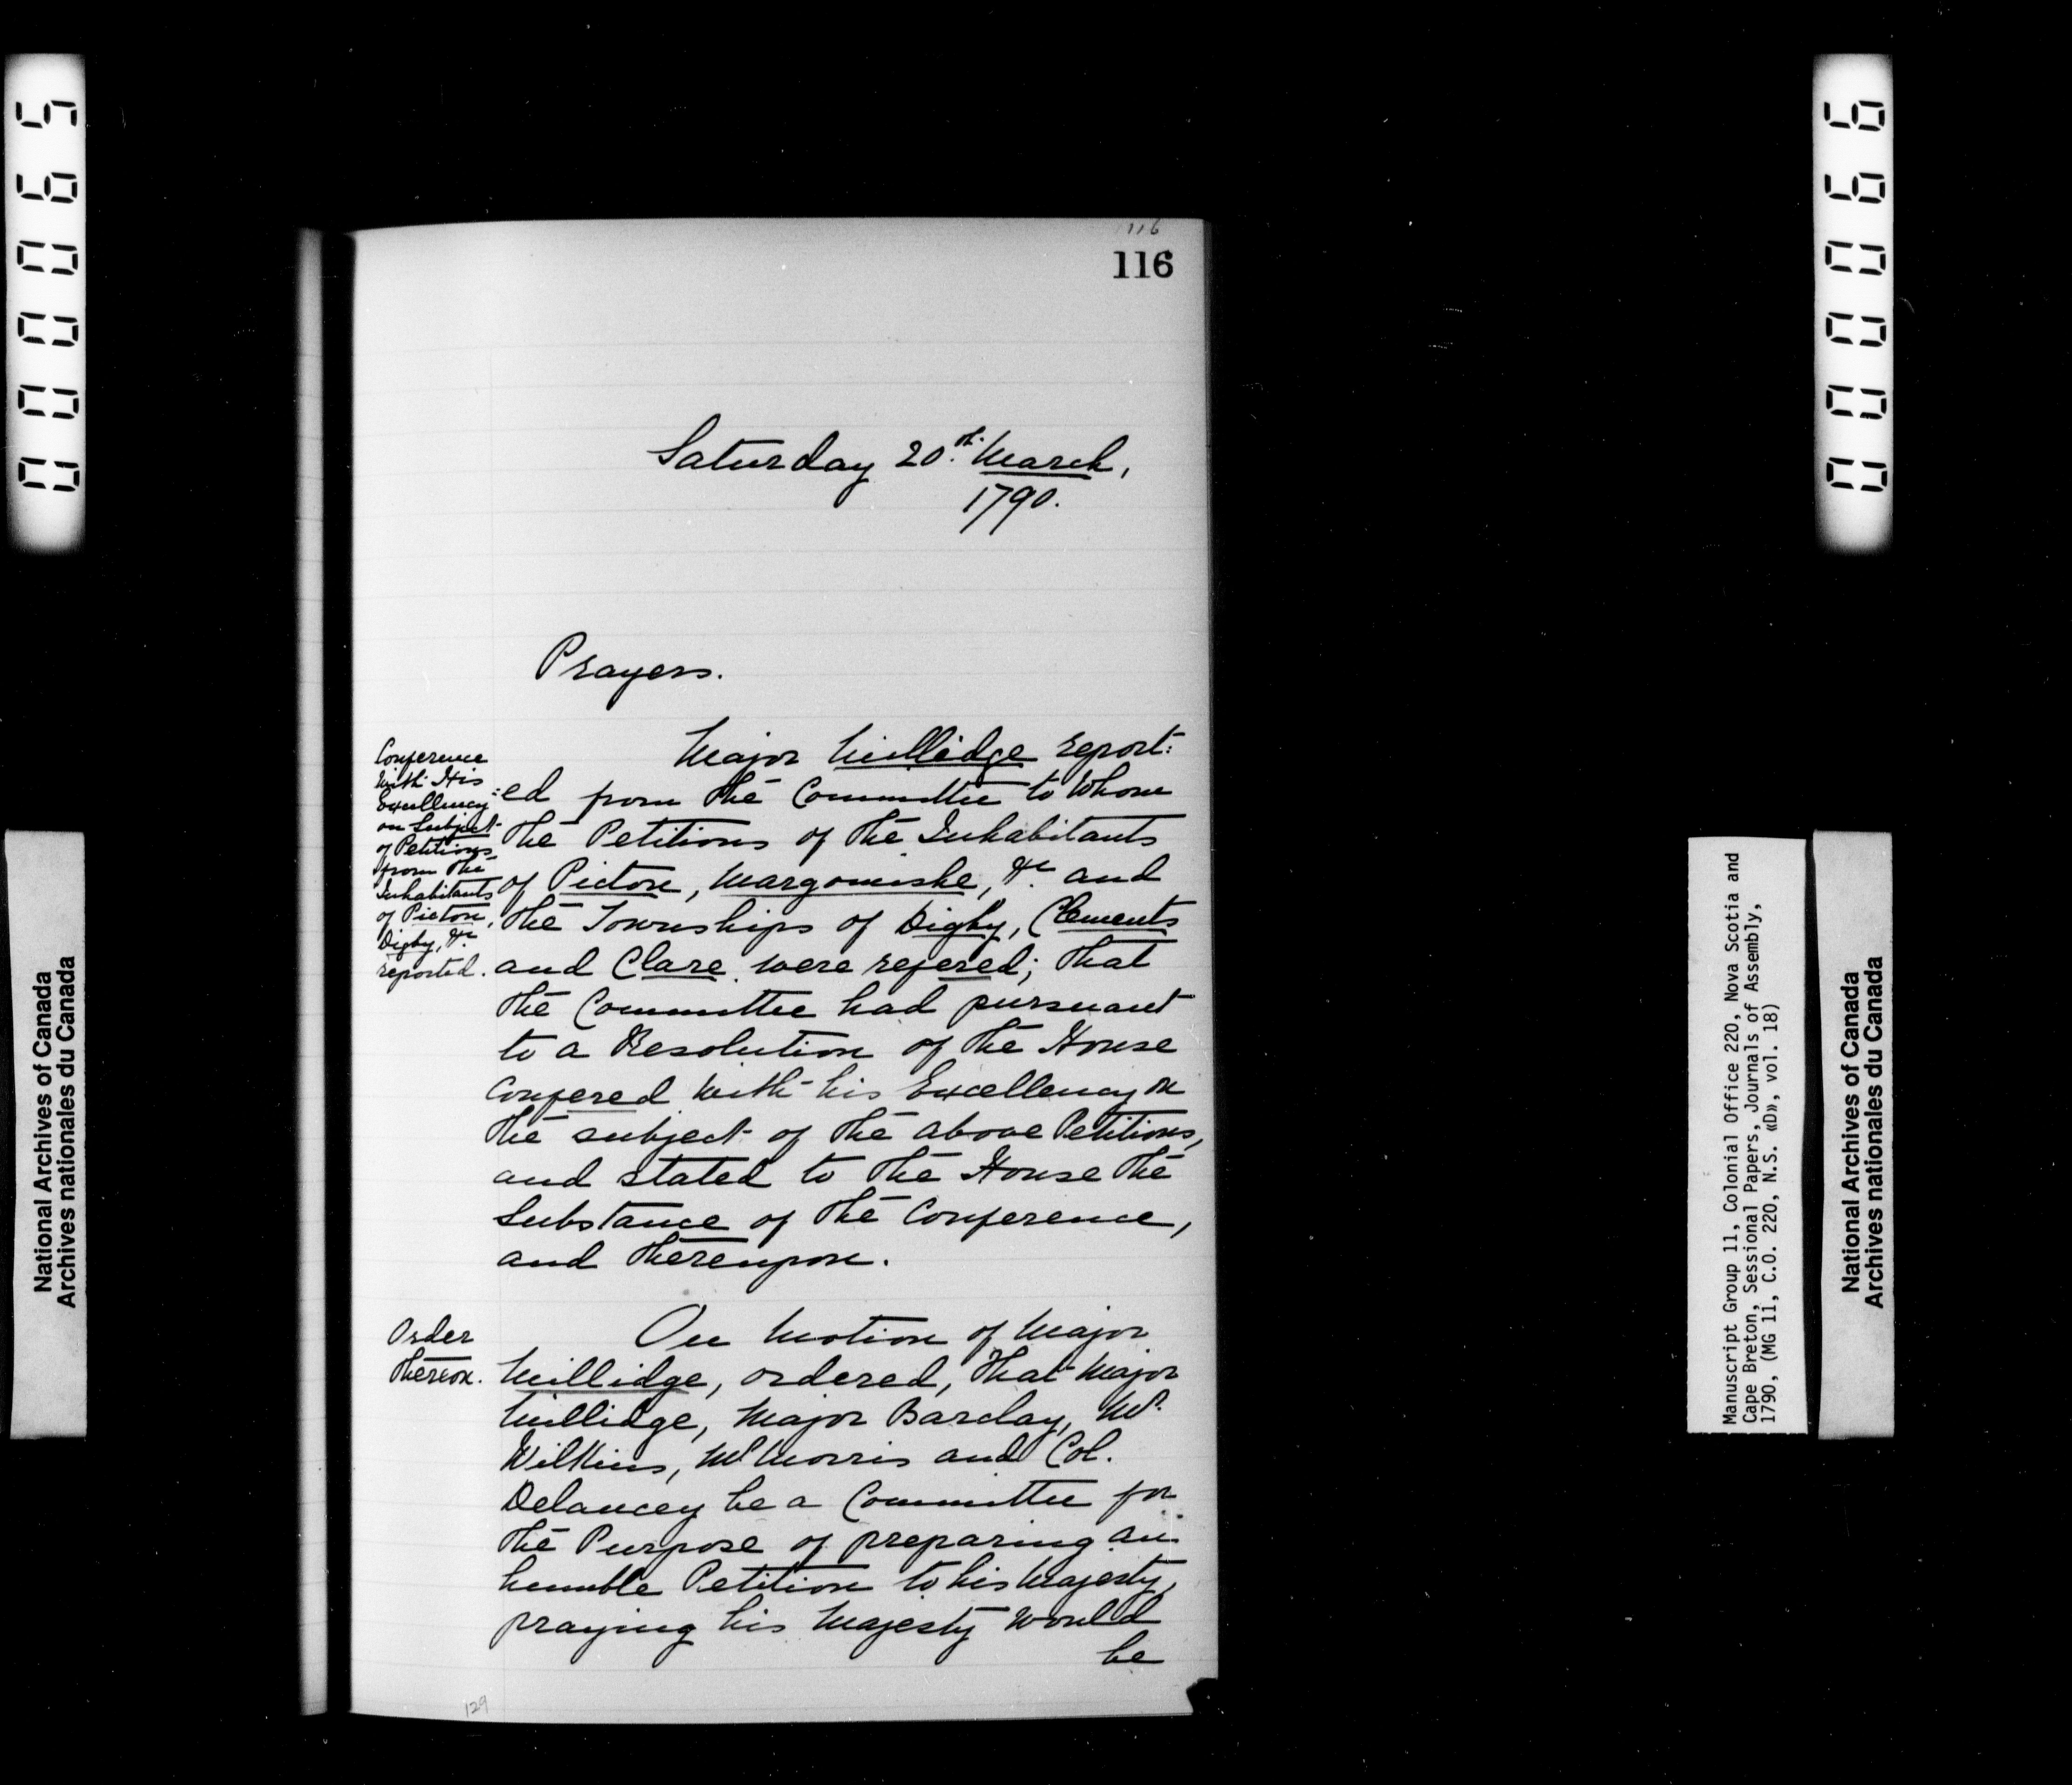 000065
000066
116
116
Saturday 20th. March,
1790.
Prayers.
Conference
with His
Excellency
on Subject
of Petitions
from the
Inhabitants
of Pictou,
Digby, &c
reported.
Major Millidge report:
:ed from the Committee to whom
the Petitions of the Inhabitants
of Pictou, Margomishe, &c. and
the Townships of Digby, Clements
and Clare were refered; that
the Committee had pursuant
to a Resolution of the House
Confered with his Excellency on
the subject of the above Petitions,
and stated to the House the
Substance of the Conference,
and thereupon.
Order
thereon.
On Motion of Major
Millidge, ordered, that Major
Millidge, Major Barclay, Mr.
Wilkins, Mr Morris and Col.
Delancey be a Committee for
the Purpose of preparing an
humble Petition to his Majesty,
praying his Majesty would
be
129
National Archives of Canada
Archives nationales du Canada
Manuscript Group 11, Colonial Office 220, Nova Scotia and
Cape Breton, Sessional Papers, Journals of Assembly,
1790, (MG 11, C.O. 220, N.S. «D», vol. 18)
National Archives of Canada
Archives nationales du Canada